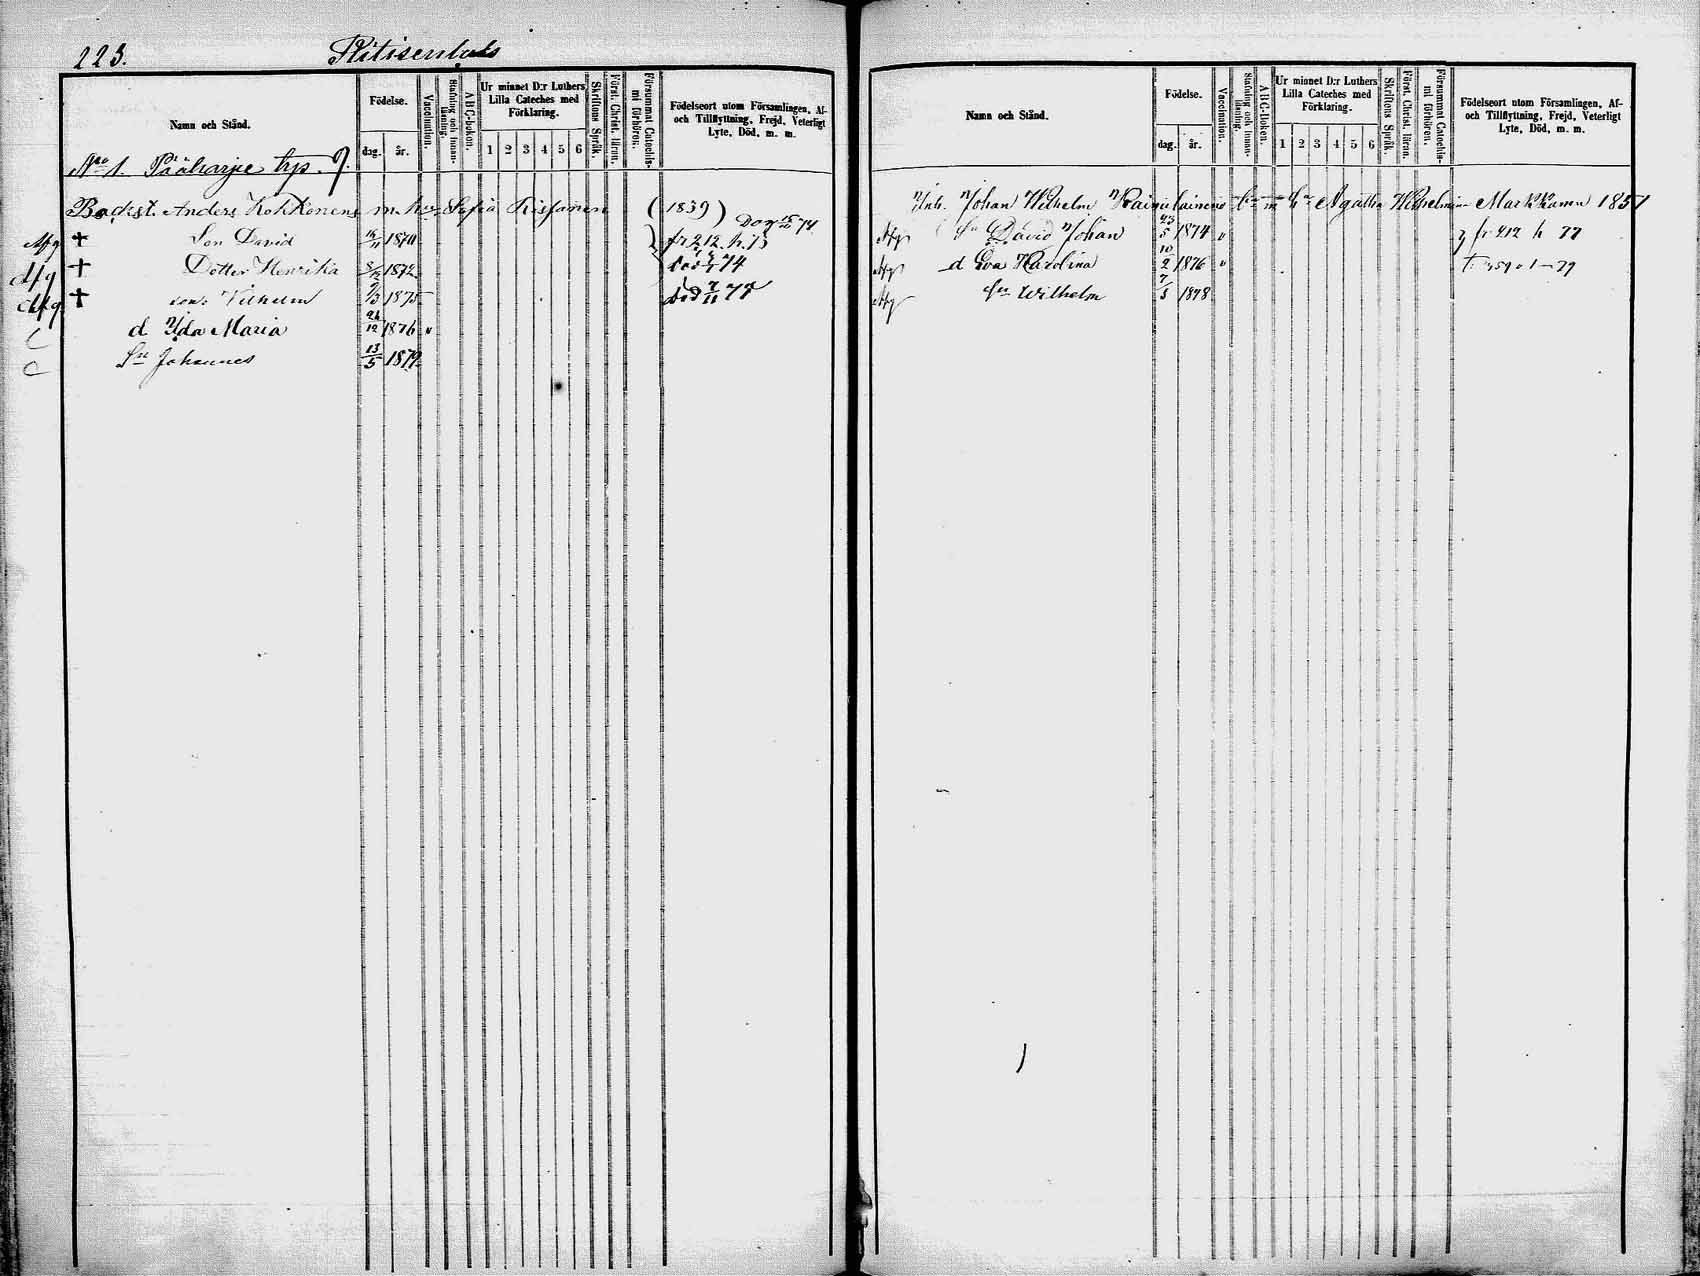 223.
Namn och Stånd.
Födelse.
dag. år.
Vaccination.
Stafning och innan-
läsning.
A B C-boken.
Ur minnet D:r Luthers
Lilla Cateches med
Förklaring.
1 2 3 4 5 6
Skriftens Språk.
Först. Christ. läran.
Försummat Catechis-
mi förhören.
Födelseort utom Församlingen, Af-
och Tillflyttning, Frejd, Veterligt
Lyte, Död, m. m.
No 1. Pääharje trp.
Backst. Anders Kohkonens m. hu Sofia (1839)
Afg † Son David 1870 fr 212. h. 75
Afg † Dotter Henrika 1872 död 74
Afg † son: Vilhelm 9/3 1875 död 7/11 77
d Ida Maria 26/12 1876 "
Sn Johannes 13/5 1879
Namn och Stånd.
Födelse.
dag. år.
Vaccination.
Stafning och innan-
läsning.
A B C-Boken.
Ur minnet D:r Luthers
Lilla Cateches med
Förklaring.
1 2 3 4 5 6
Skriftens Språk.
Först. Christ. läran.
Försummat Catechis-
mi förhören.
Födelseort utom Församlingen, Af-
och Tillflyttning, Frejd, Veterligt
Lyte, Död, m. m.
Inh. Johan Wilhelm m hu Agatha Wilhelmina Markkanen 1857
Afg Sn David Johan 1874 " fr 212 h 77
Afg d Eva Karolina 10/2 1876 "
Afg Sn Wilhelm 7/5 1878